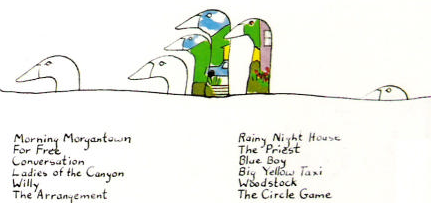 Morning Morgantown
For Free
Conversation
Ladies of the Canyon
Willy
The Arrangement
Rainy Night House
The Priest
Blue Boy
Big Yellow Taxi
Woodstock
The Circle Game